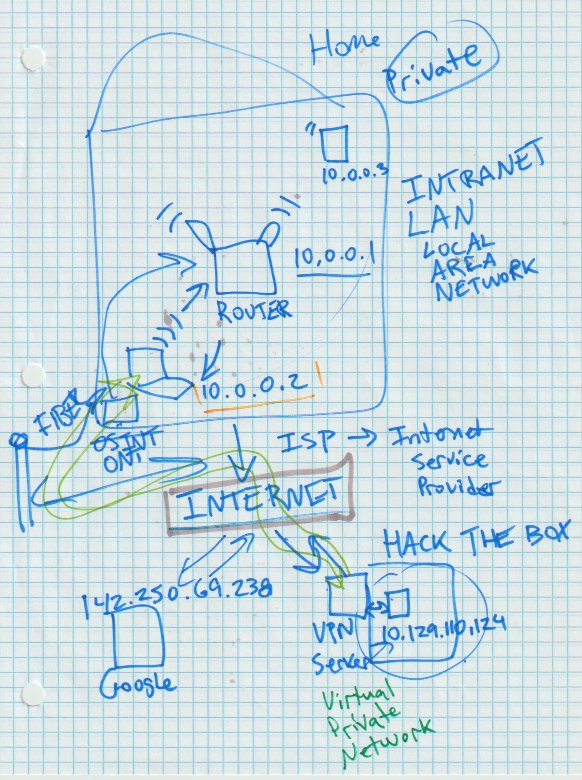 Home
Private
10.0.0.3
INTRANET
LAN
LOCAL
AREA
NETWORK
10.0.0.1
ROUTER
10.0.0.2
FIBER
OSINT
ONT
ISP → Internet
Service
Provider
INTERNET
HACK THE BOX
142.250.69.238
Google
VPN
Server
10.129.110.124
Virtual
Private
Network